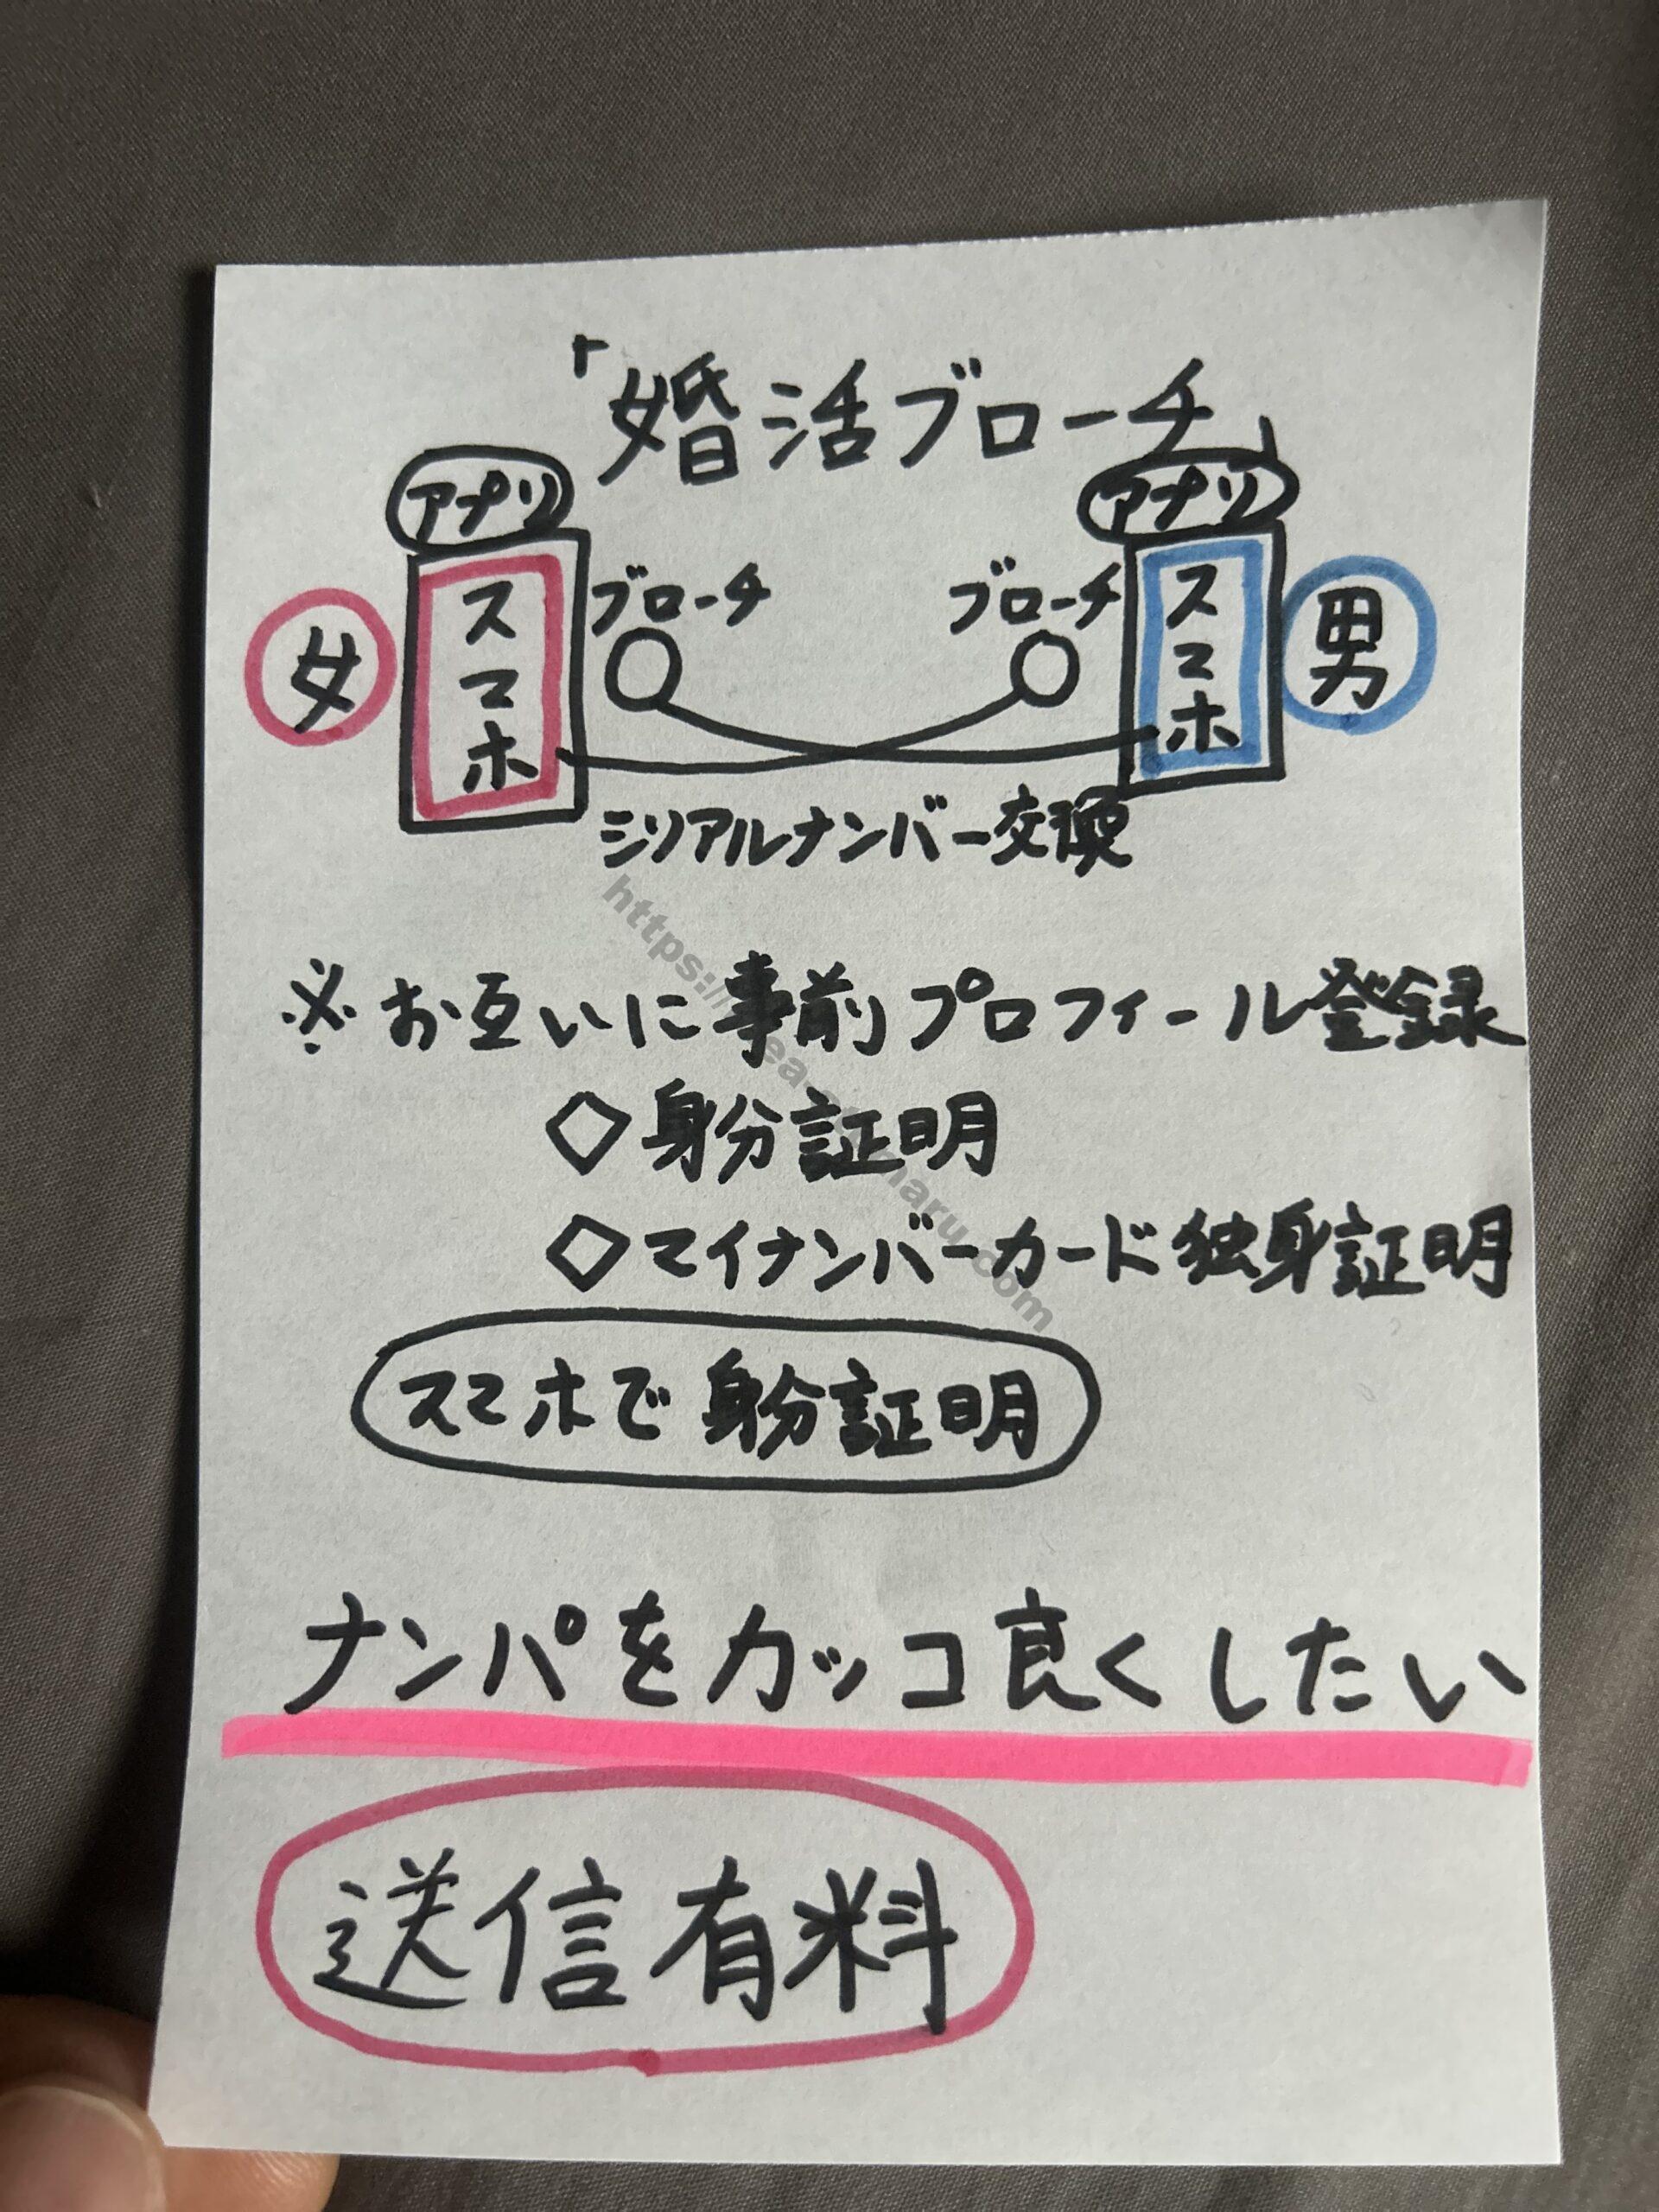 「婚活ブローチ」
アプリ アプリ
女 スマホ ブローチ ブローチ スマホ 男
シリアルナンバー交換
※お互いに事前プロフィール登録
◇身分証明
◇マイナンバーカード独身証明
スマホで身分証明
ナンパをカッコ良くしたい
送信有料